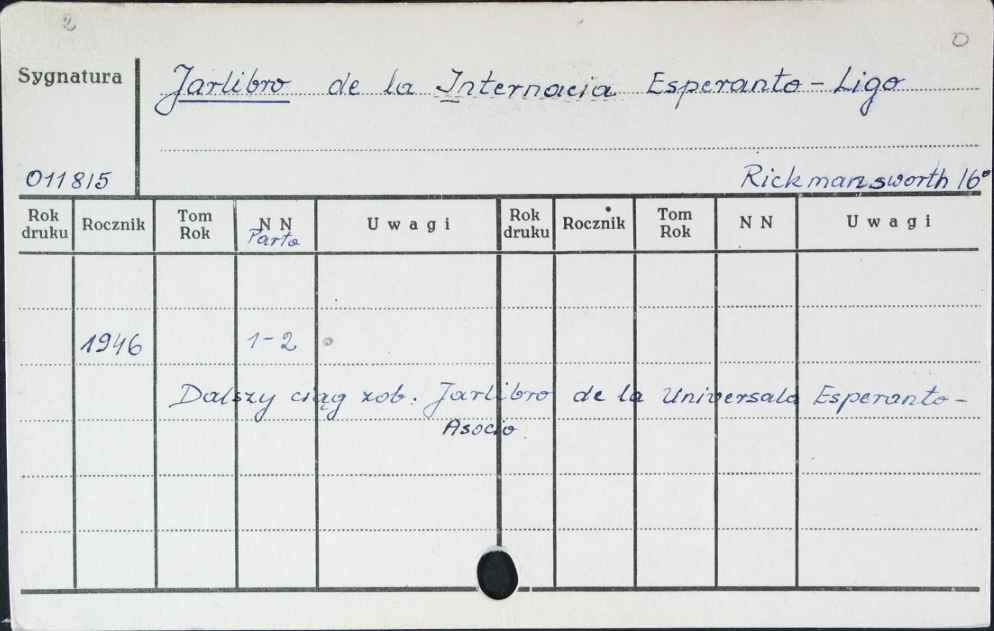 2
0
Sygnatura
Jarlibro de la Internacia Esperanto-Ligo
011815
Rickmansworth 16°
Rok druku Rocznik Tom Rok N N Parto Uwagi Rok druku Rocznik Tom Rok N N Uwagi
1946 1-2
Dalszy ciąg zob. Jarlibro de la Universala Esperanto-
Asocio.